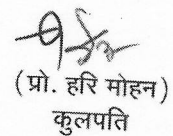 (प्रो. हरि मोहन)
कुलपति